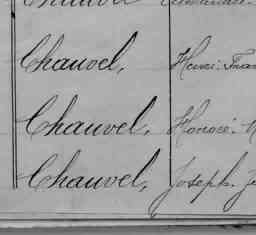 Chauvel, Henri. Fran
Chauvel, Honoré. M
Chauvel, Joseph. Je